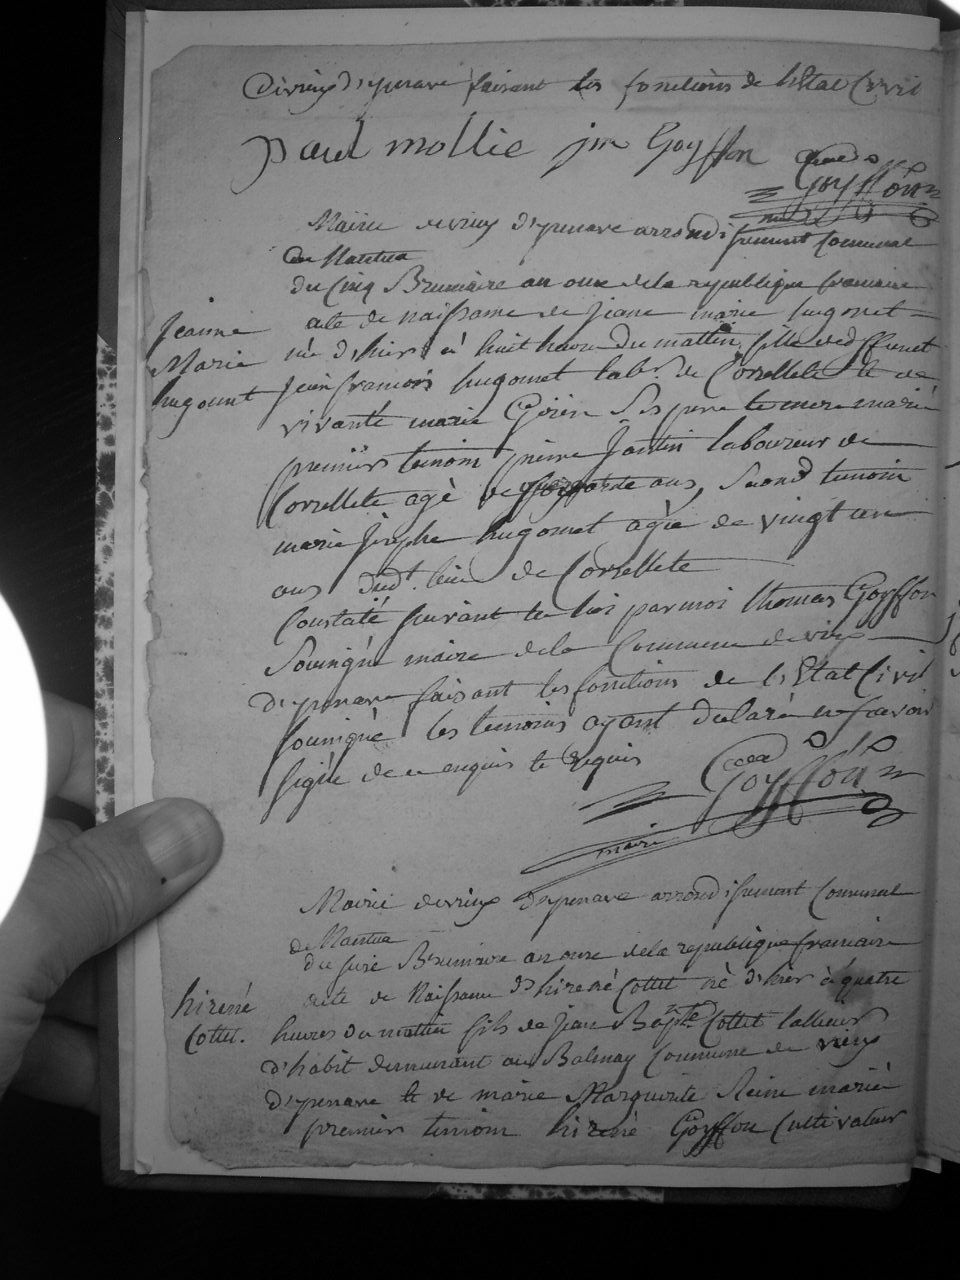 de vieux d'yzenave faisant les fonctions de l'Etat Civil
paul mollie jm Goyffon
Goyffon
Mairie de vieux d'yzenave arrondissement Communal
de Nantua
du Cinq Brumaire an onze de la republique francaise
acte de naissance de jeane marie hugonet
née d'hier à huit heure du mattin, fille de deffunct
jean francois hugonet lab.r de Corcellete et de
vivante marie ses pere et mere marié
premier temoin pierre laboureur de
Corcellete agè de ans, second temoin
marie josephe hugonet agée de vingt un
ans dud.t lieu de Corcellete
Constaté suivant la loi par moi thomas Goyffon
Soussigné maire de la Commune de vieux
d'yzenave faisant les fonctions de l'Etat Civil
soussigné les temoins ayant declaré ne savoir
signé de ce enquis et requis
Goyffon
maire
Jeanne
Marie
hugonet
Mairie de vieux d'yzenave arrondissement Communal
de Nantua
du seize Brumaire an onze de la republique francaise
acte de Naissance d'hirené Cottet né d'hier à quatre
heures du mattin fils de jean Bap.te Cottet tailleur
d'habit demeurant au Balmay Commune de vieux
d'yzenave et de marie Marguerite Reine marié
premier temoin hirené Goyffon Cultivateur
hirené
Cottet.